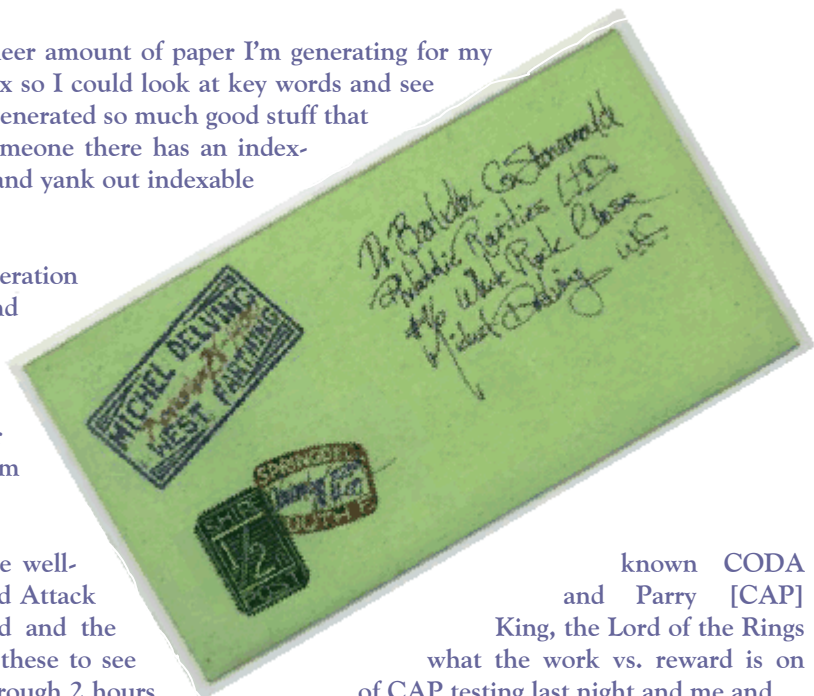 eer amount of paper I'm generating for my
x so I could look at key words and see
enerated so much good stuff that
meone there has an index-
and yank out indexable
eration
m
e well-
d Attack
d and the
these to see
rough 2 hours
known CODA
and Parry [CAP]
King, the Lord of the Rings
what the work vs. reward is on
of CAP testing last night and me and
Dr.
Rarities LTD
White Rock Close
Michel Delving W.F.
MICHEL DELVING
WEST FARTHING
SHIRE
1/2
POST